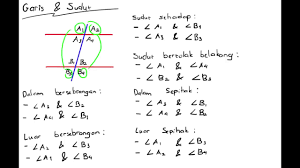 Garis & Sudut
A₁ A₂
A₃ A₄
B₁
B₃ B₄
Sudut sehadap:
- ∠A₁ & ∠B₁
- ∠A₂ & ∠B₂
- ∠A₃ & ∠B₃
- ∠A₄ & ∠B₄
Sudut bertolak belakang:
- ∠A₁ & ∠A₄
- ∠B₁ & ∠B₄
Dalam berseberangan:
- ∠A₃ & ∠B₂
- ∠A₄ & ∠B₁
Dalam Sepihak:
- ∠A₃ & ∠B₁
- ∠A₄ & ∠B₂
Luar berseberangan:
- ∠A₁ & ∠B₄
- ∠A₂ & ∠B₃
Luar Sepihak:
- ∠A₁ & ∠B₃
- ∠A₂ & ∠B₄